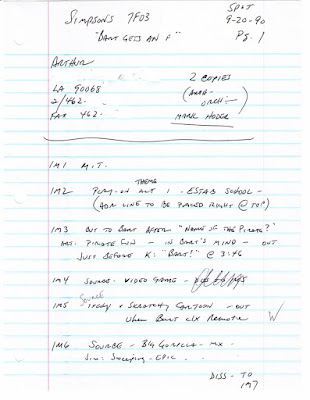 SIMPSONS 7F03 SPOT
9-20-90
"BART GETS AN F" Pg. 1
ARTHUR
2 COPIES
LA 90068
2/462.
FAX 462.
MARK HODER
1M1 M.T.
THEME
1M2 PLAY-ON ACT 1 - ESTAB SCHOOL -
(ADR LINE TO BE PLACED RIGHT @ TOP)
1M3 CUT TO BART AFTER "NAME OF THE PIRATE?"
PIRATE FUN - IN BART'S MIND - OUT
JUST BEFORE K: "BART!" @ 3:46
1M4 SOURCE - VIDEO GAME -
SOURCE
1M5 ITCHY & SCRATCHY CARTOON - OUT
When BART clx Remote W
1M6 SOURCE - BIG GORILLA - MX.
Sweeping - EPIC
DISS - TO
1M7